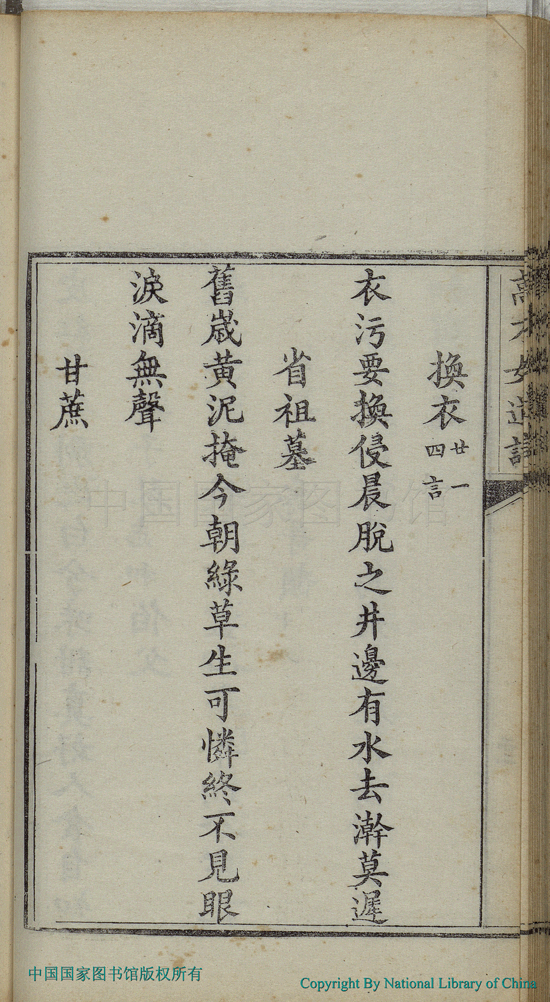 換衣 廿一四言
衣污要換侵晨脫之井邊有水去澣莫遲
省祖墓
舊歲黃泥掩今朝綠草生可憐終不見眼
淚滴無聲
甘蔗
中国国家图书馆
中国国家图书馆版权所有
Copyright By National Library of China